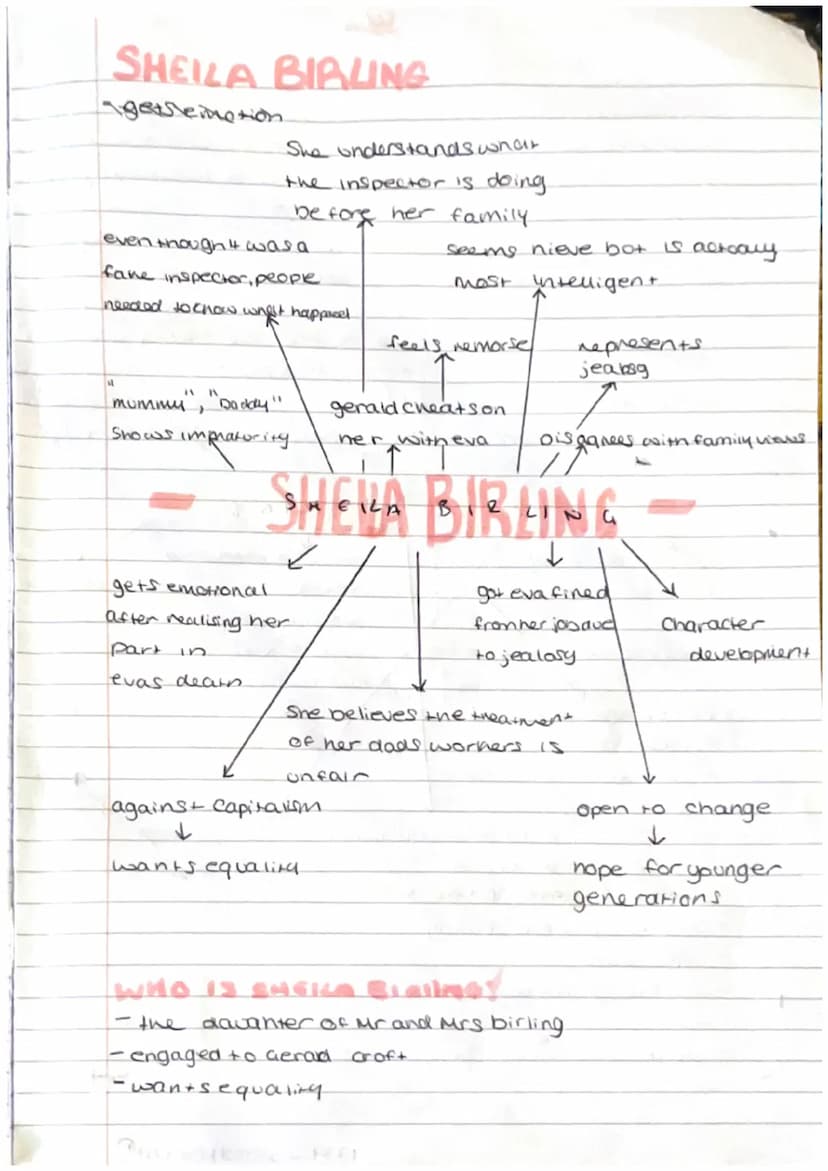 SHEILA BIRLING
She understands what
the inspector is doing
before her family
even though it was a
fake inspector, people
needed to know what happened
seems nieve but is actually
most intelligent
feels remorse
represents
"mummy", "Daddy"
shows immaturity
gerald cheats on
her with eva
disagrees with family views
SHEILA BIRLING
gets emotional
after realising her
part in
evas death
got eva fired
from her job due
to jealasy
Character
development
She believes the treatment
of her dads workers is
unfair
against capitalism
wants equality
open to change
hope for younger
generations
WHO IS SHEILA BIRLING?
- the daughter of Mr and Mrs birling
- engaged to Gerad croft
- wants equality